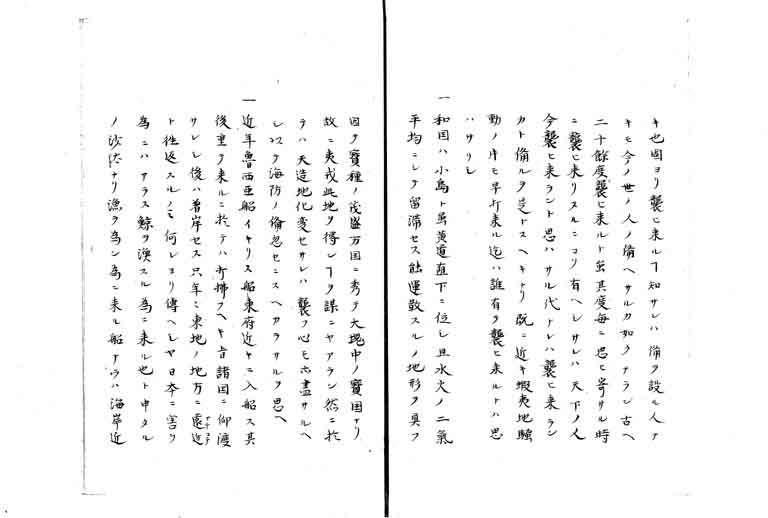 キ也因ヨリ襲ヒ来ルヿ知サレハ備ヲ設ル人ナ
キモ今ノ世ノ人ノ備ヘサルカ如クナラン古ヘ
二十餘度襲ヒ来ルト虽其度毎ニ思ヒ寄サル時
ニ襲ヒ来リスルニコリ有ヘシサレハ天下ノ人
今襲ヒ来ラント思ハサル代ナレハ襲ヒ来ラン
カト備ルヲ是トスヘキナリ既ニ近キ蝦夷地騒
動ノ片モ早打来ル迄ハ誰有ヲ襲ヒ来ルトハ思
ハサリシ
一 和国ハ小島ト虽黄道直下ニ位シ且水火ノ二氣
平均ニシテ留滞セス能運数スルノ地形ヲ具フ
因テ寶種ノ茂盛万国ニ秀テ大塊中ノ寶国ナリ
故ニ夷戎此地ヲ得レヿヲ謀ニヤアラン然ニ於
テハ天造地化変セサレハ襲フ心モ亦盡サルヘ
シ以テ海防ノ備忽セニスヘカラサルヲ思ヘ
一 近年魯西亜船イキリス船東府近キニ入船ス其
後重テ来ルニ於テハ打拂フヘキ旨諸国ニ仰渡
サレシ後ハ着岸セス只年ミ東地ノ地方ニ遠近
ト往返スルノミ何レヨリ傳ヘシヤ日本ニ害ヲ
為ニハアラス鯨ヲ漁スル為ニ来ル也ト申タル
ノ沙汰ナリ漁ヲ為ン為ニ来ル船ナラハ海岸近